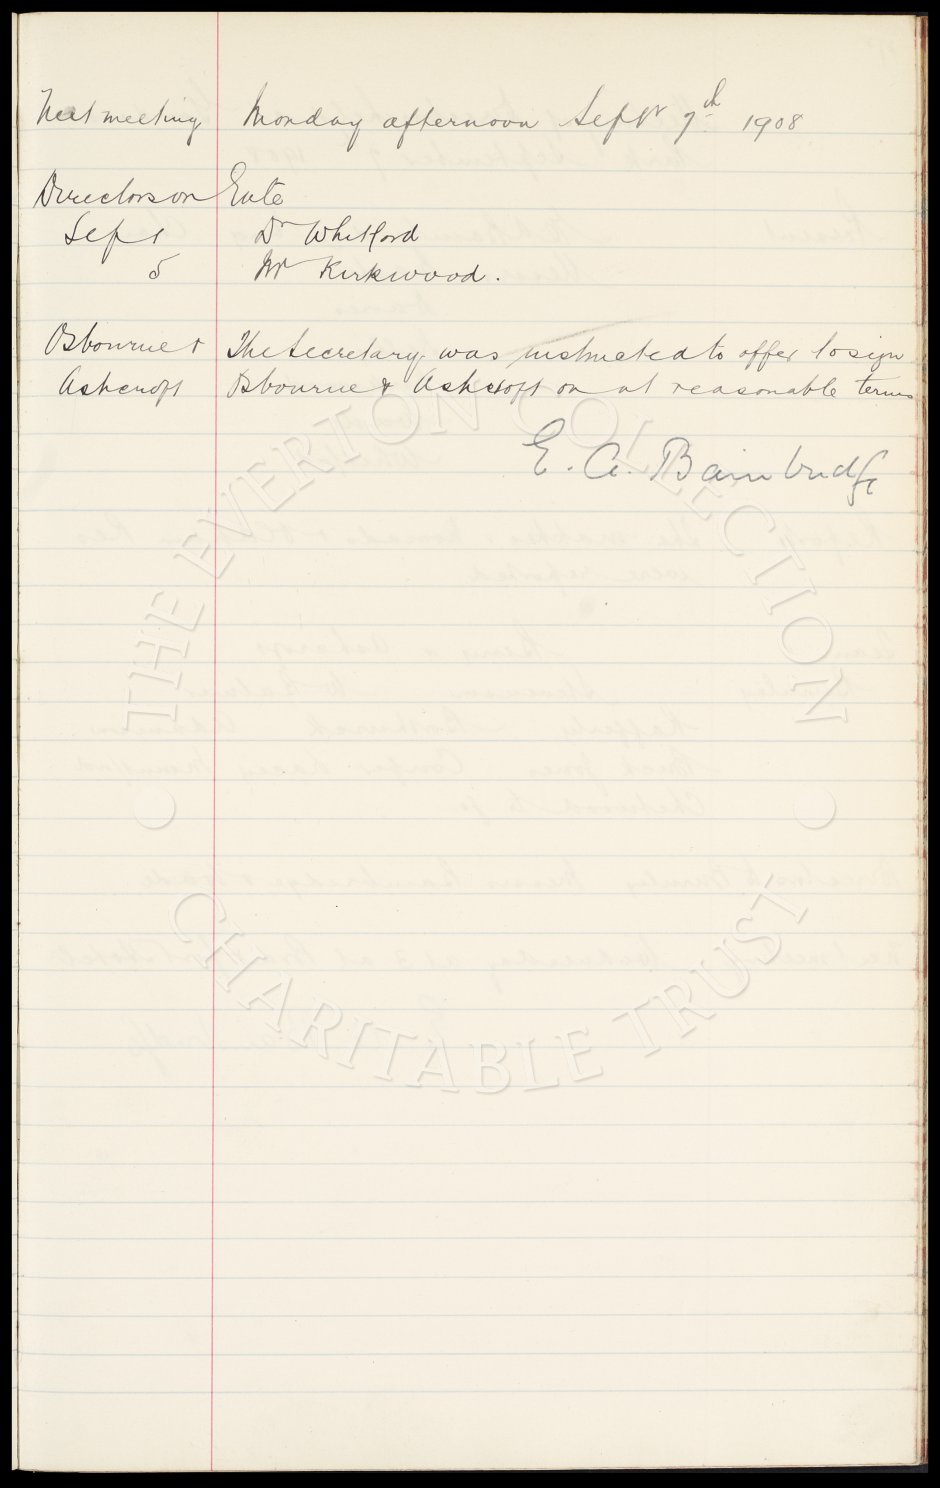 Next meeting Monday afternoon Sept 7th 1908
Directors on Gate
Sept 1 Dr Whitford
5 Mr Kirkwood.
Osbourne & The Secretary was instructed to offer to sign
Ashcroft Osbourne & Ashcroft on at reasonable terms
E. A. Bainbridge
THE EVERTON COLLECTION
CHARITABLE TRUST